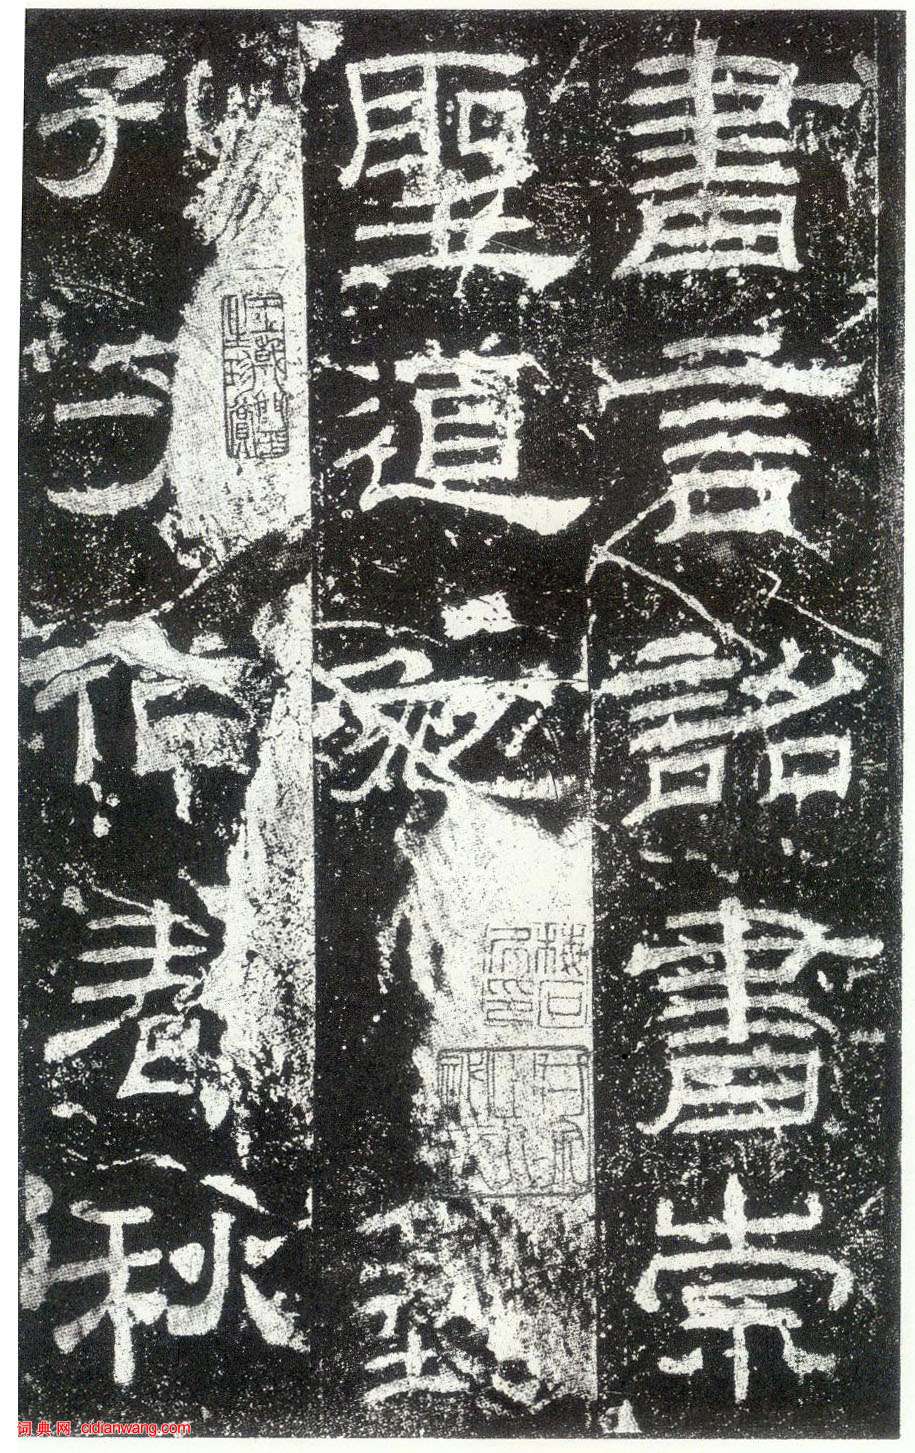 書言詔書崇
聖道勉藝
孔子作春秋
词典网 cidianwang.com